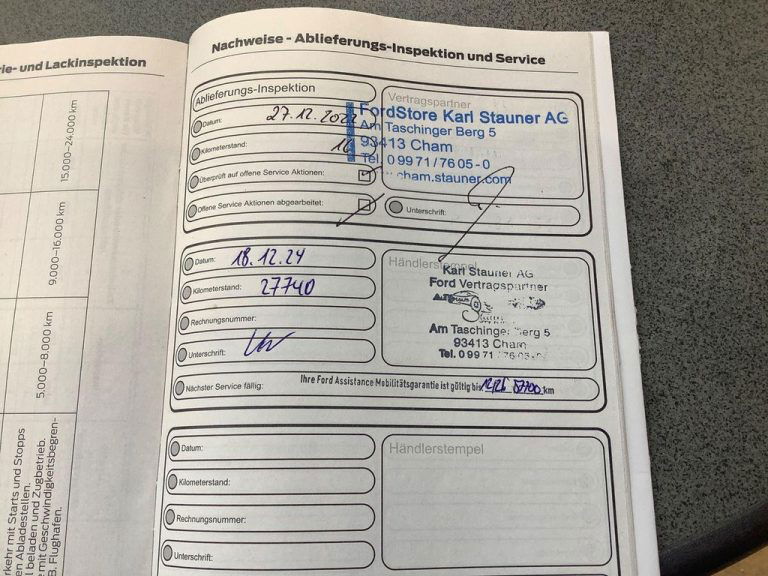 rie- und Lackinspektion
15.000–24.000 km
9.000–16.000 km
5.000–8.000 km
rkehr mit Starts und Stopps
en Abladestellen.
l beladen und Zugbetrieb.
e mit Geschwindigkeitsbegren-
B. Flughafen.
Nachweise - Ablieferungs-Inspektion und Service
Ablieferungs-Inspektion
Datum: 27.12.2022
Kilometerstand: 16
Überprüft auf offene Service Aktionen:
Offene Service Aktionen abgearbeitet:
Vertragspartner
FordStore Karl Stauner AG
Am Taschinger Berg 5
93413 Cham
Tel. 0 99 71 / 76 05 - 0
cham.stauner.com
Unterschrift:
Datum: 18.12.24
Kilometerstand: 27740
Rechnungsnummer:
Unterschrift:
Händlerstempel
Karl Stauner AG
Ford Vertragspartner
Am Taschinger Berg 5
93413 Cham
Tel. 0 99 71 / 76 05-0
Nächster Service fällig: Ihre Ford Assistance Mobilitätsgarantie ist gültig bis 12/26 57700 km
Datum:
Kilometerstand:
Rechnungsnummer:
Unterschrift:
Händlerstempel